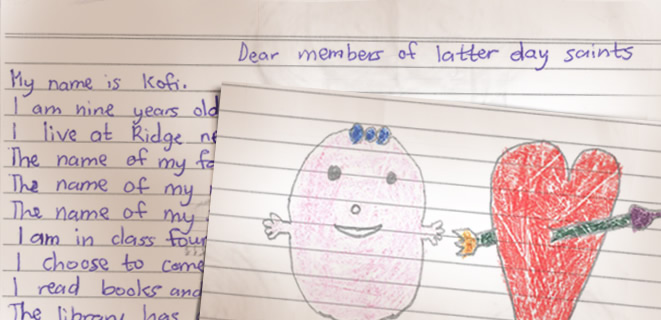 Dear members of latter day saints
My name is Kofi.
I am nine years old
I live at Ridge
The name of my
The name of my
The name of my
I am in class four
I choose to come
I read books and
The library has